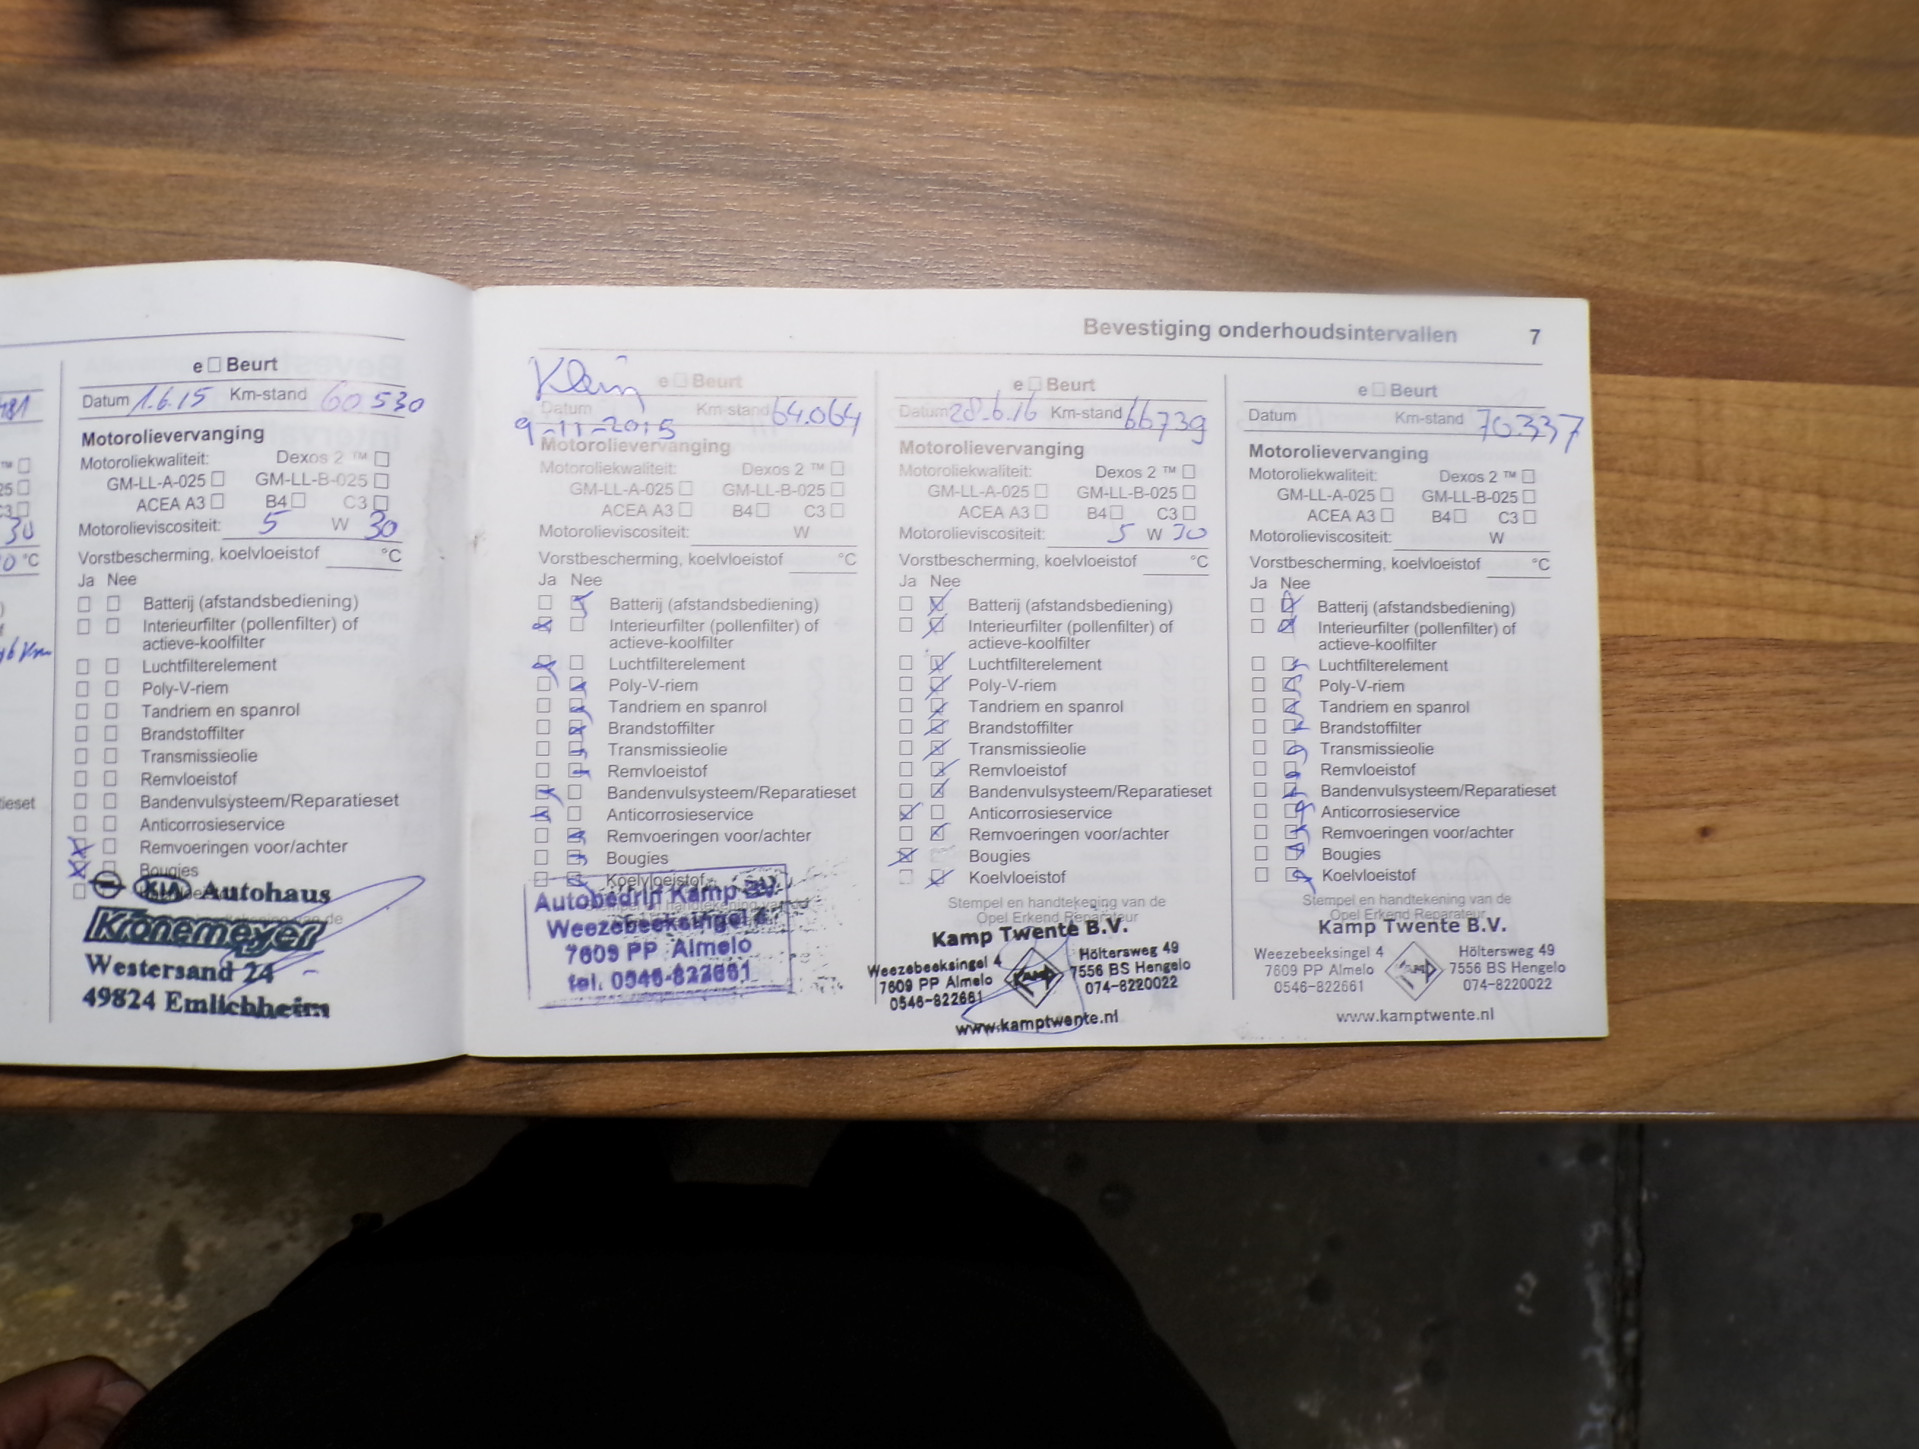 481
™
025
C3
30
0 °C
46 Km
ieset
e Beurt
Datum 1.6.15 Km-stand 60530
Motorolievervanging
Motoroliekwaliteit: Dexos 2 ™
GM-LL-A-025 GM-LL-B-025
ACEA A3 B4 C3
Motorolieviscositeit: 5 W 30
Vorstbescherming, koelvloeistof °C
Ja Nee
Batterij (afstandsbediening)
Interieurfilter (pollenfilter) of
actieve-koolfilter
Luchtfilterelement
Poly-V-riem
Tandriem en spanrol
Brandstoffilter
Transmissieolie
Remvloeistof
Bandenvulsysteem/Reparatieset
Anticorrosieservice
Remvoeringen voor/achter
Bougies
KIA Autohaus
Kronemeyer
Westersand 24
49824 Emlichheim
Bevestiging onderhoudsintervallen 7
Klein
e Beurt
Datum Km-stand 64.064
9-11-2015
Motorolievervanging
Motoroliekwaliteit: Dexos 2 ™
GM-LL-A-025 GM-LL-B-025
ACEA A3 B4 C3
Motorolieviscositeit: W
Vorstbescherming, koelvloeistof °C
Ja Nee
Batterij (afstandsbediening)
Interieurfilter (pollenfilter) of
actieve-koolfilter
Luchtfilterelement
Poly-V-riem
Tandriem en spanrol
Brandstoffilter
Transmissieolie
Remvloeistof
Bandenvulsysteem/Reparatieset
Anticorrosieservice
Remvoeringen voor/achter
Bougies
Koelvloeistof
Autobedrijf Kamp BV.
Weezebeeksingel 4
7609 PP Almelo
tel. 0546-822661
e Beurt
Datum 28.6.16 Km-stand 66739
Motorolievervanging
Motoroliekwaliteit: Dexos 2 ™
GM-LL-A-025 GM-LL-B-025
ACEA A3 B4 C3
Motorolieviscositeit: 5 W 30
Vorstbescherming, koelvloeistof °C
Ja Nee
Batterij (afstandsbediening)
Interieurfilter (pollenfilter) of
actieve-koolfilter
Luchtfilterelement
Poly-V-riem
Tandriem en spanrol
Brandstoffilter
Transmissieolie
Remvloeistof
Bandenvulsysteem/Reparatieset
Anticorrosieservice
Remvoeringen voor/achter
Bougies
Koelvloeistof
Stempel en handtekening van de
Opel Erkend Reparateur
Kamp Twente B.V.
Weezebeeksingel 4 Höltersweg 49
7609 PP Almelo KAMP 7556 BS Hengelo
0546-822661 074-8220022
www.kamptwente.nl
e Beurt
Datum Km-stand 70.337
Motorolievervanging
Motoroliekwaliteit: Dexos 2 ™
GM-LL-A-025 GM-LL-B-025
ACEA A3 B4 C3
Motorolieviscositeit: W
Vorstbescherming, koelvloeistof °C
Ja Nee
Batterij (afstandsbediening)
Interieurfilter (pollenfilter) of
actieve-koolfilter
Luchtfilterelement
Poly-V-riem
Tandriem en spanrol
Brandstoffilter
Transmissieolie
Remvloeistof
Bandenvulsysteem/Reparatieset
Anticorrosieservice
Remvoeringen voor/achter
Bougies
Koelvloeistof
Stempel en handtekening van de
Opel Erkend Reparateur
Kamp Twente B.V.
Weezebeeksingel 4 Höltersweg 49
7609 PP Almelo KAMP 7556 BS Hengelo
0546-822661 074-8220022
www.kamptwente.nl